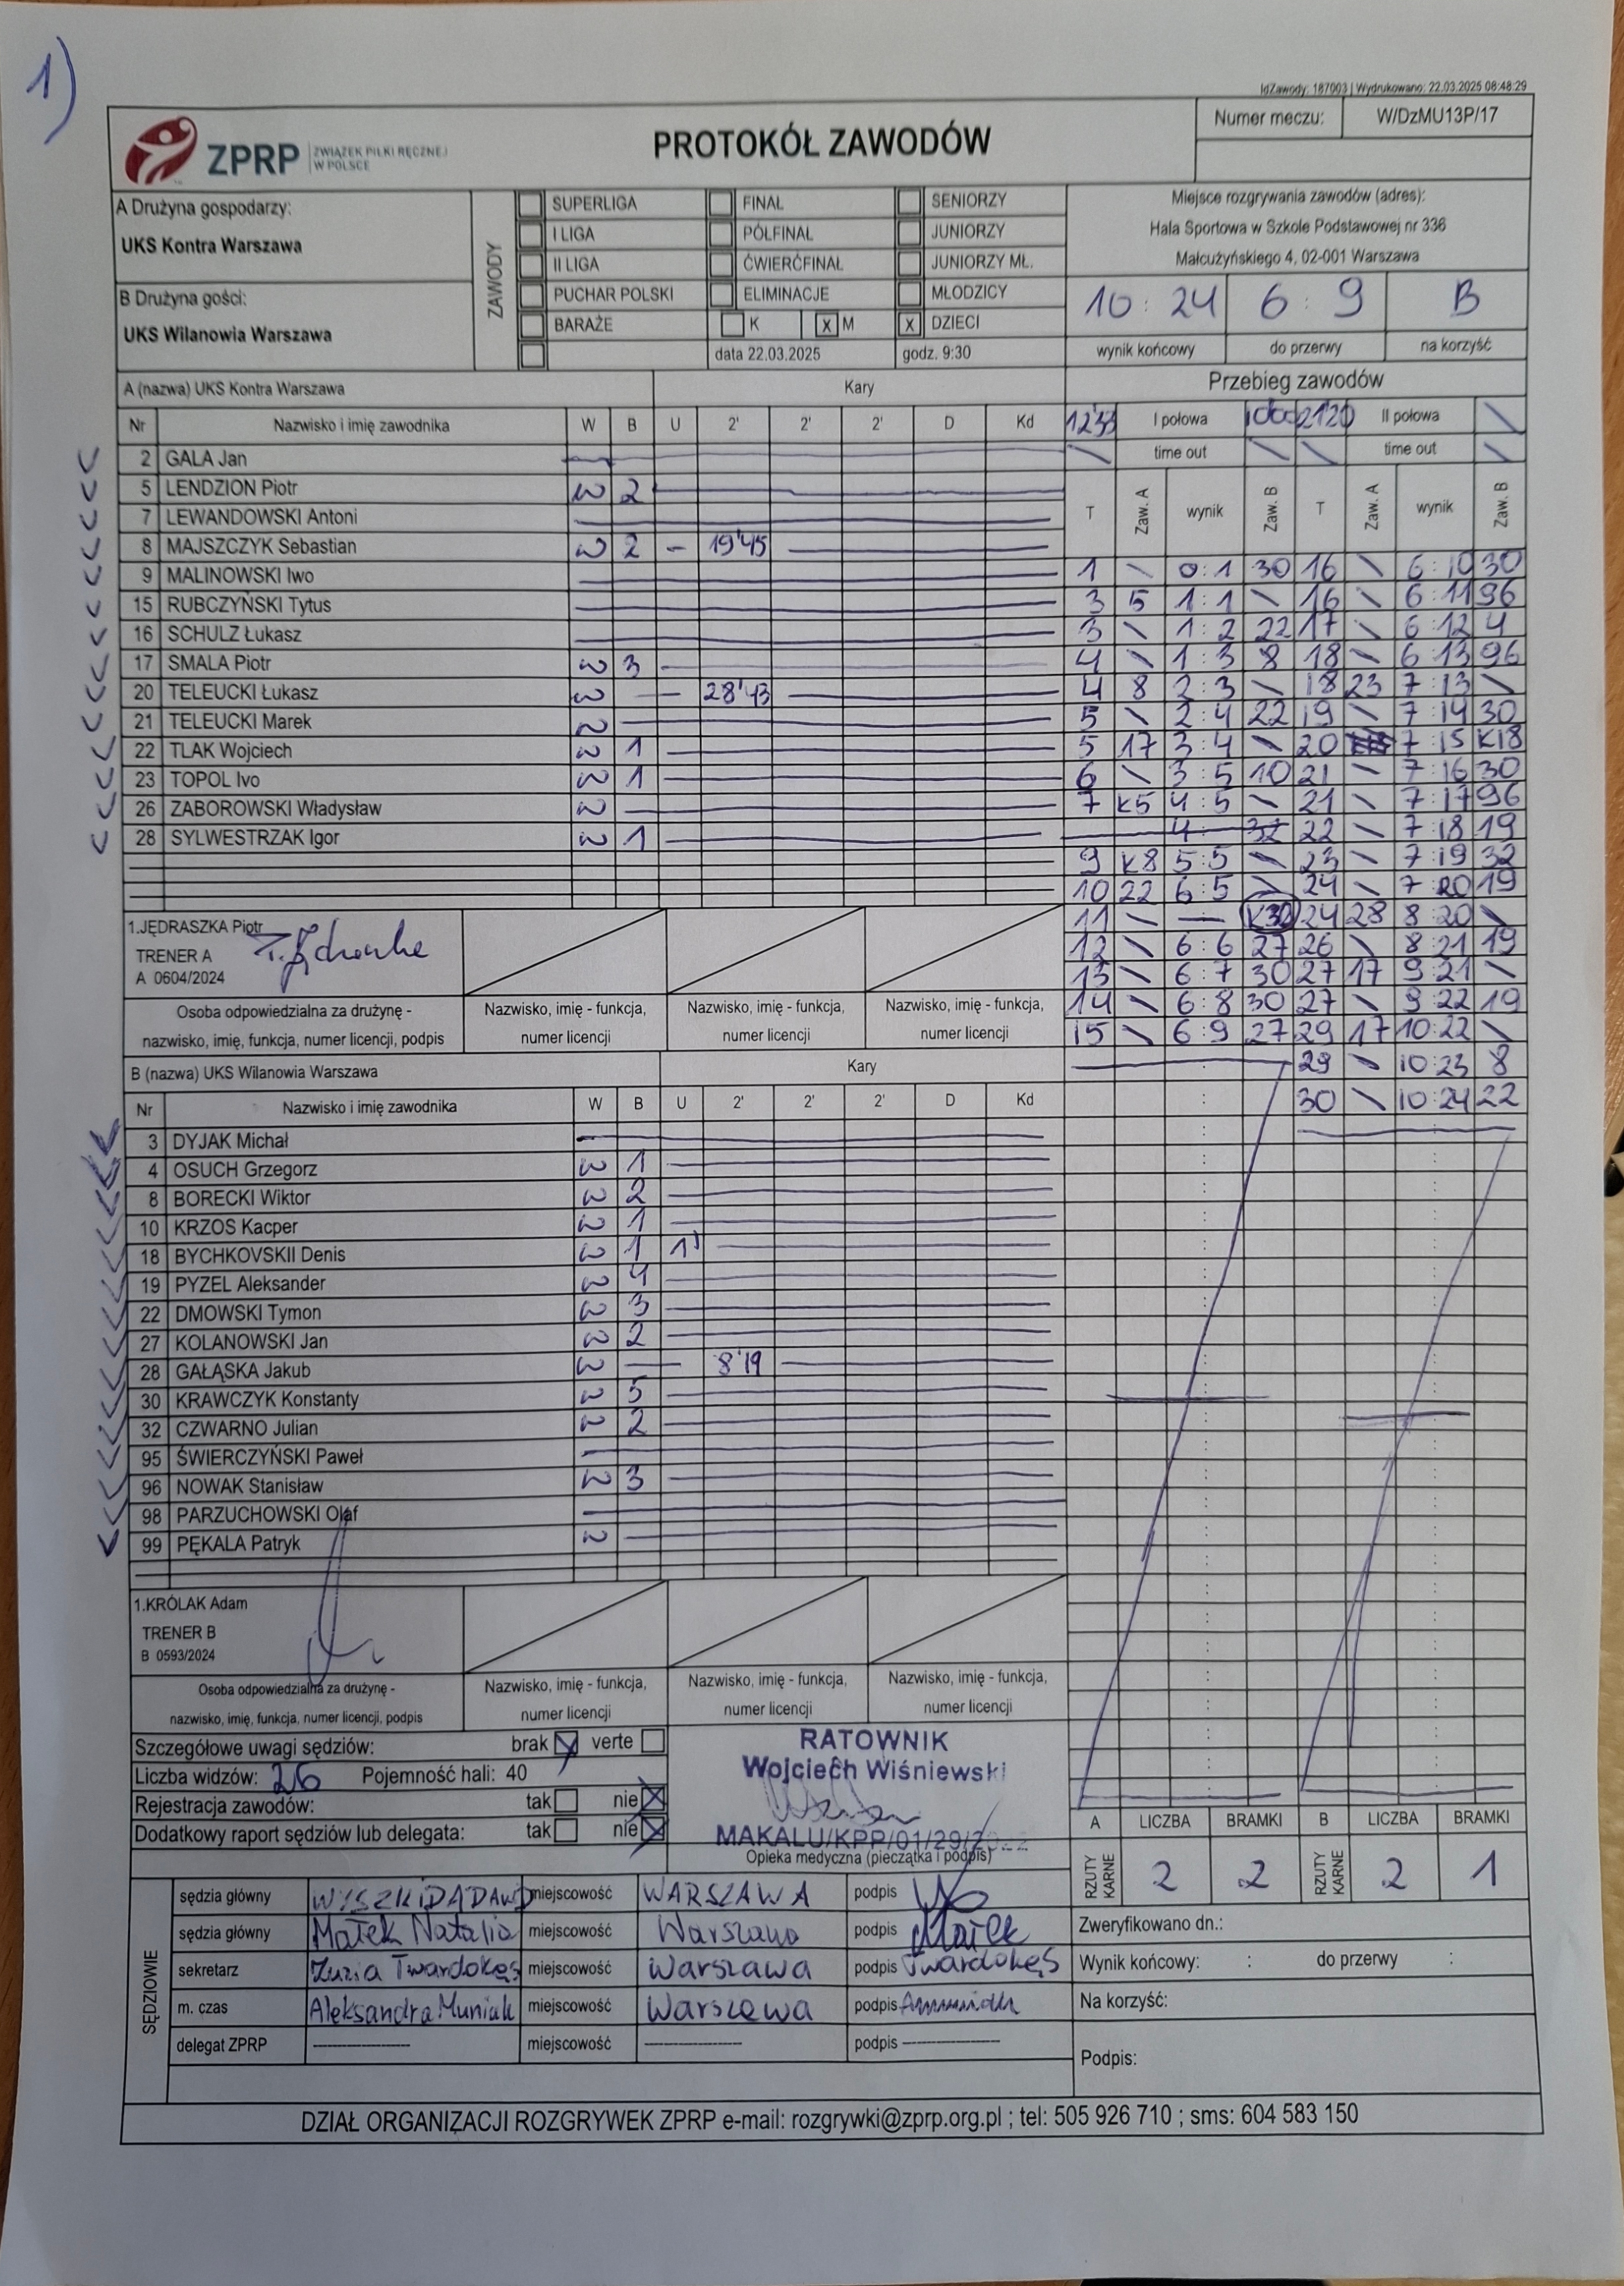 1)
IdZawody: 187003 | Wydrukowano: 22.03.2025 08:48:29
ZPRP ZWIĄZEK PIŁKI RĘCZNEJ W POLSCE
PROTOKÓŁ ZAWODÓW
Numer meczu: W/DzMU13P/17
A Drużyna gospodarzy:
UKS Kontra Warszawa
B Drużyna gości:
UKS Wilanowia Warszawa
ZAWODY
SUPERLIGA FINAŁ SENIORZY
I LIGA PÓŁFINAŁ JUNIORZY
II LIGA ĆWIERĆFINAŁ JUNIORZY MŁ.
PUCHAR POLSKI ELIMINACJE MŁODZICY
BARAŻE K x M x DZIECI
data 22.03.2025 godz. 9:30
Miejsce rozgrywania zawodów (adres):
Hala Sportowa w Szkole Podstawowej nr 336
Małcużyńskiego 4, 02-001 Warszawa
10 : 24 6 : 9 B
wynik końcowy do przerwy na korzyść
A (nazwa) UKS Kontra Warszawa Kary
Nr Nazwisko i imię zawodnika W B U 2' 2' 2' D Kd
2 GALA Jan
5 LENDZION Piotr W 2
7 LEWANDOWSKI Antoni
8 MAJSZCZYK Sebastian W 2 - 19'45
9 MALINOWSKI Iwo
15 RUBCZYŃSKI Tytus
16 SCHULZ Łukasz
17 SMALA Piotr W 3
20 TELEUCKI Łukasz W 28'43
21 TELEUCKI Marek W
22 TLAK Wojciech W 1
23 TOPOL Ivo W 1
26 ZABOROWSKI Władysław W
28 SYLWESTRZAK Igor W 1
1.JĘDRASZKA Piotr
TRENER A
A 0604/2024
Osoba odpowiedzialna za drużynę - nazwisko, imię, funkcja, numer licencji, podpis
Nazwisko, imię - funkcja, numer licencji
Nazwisko, imię - funkcja, numer licencji
Nazwisko, imię - funkcja, numer licencji
B (nazwa) UKS Wilanowia Warszawa Kary
Nr Nazwisko i imię zawodnika W B U 2' 2' 2' D Kd
3 DYJAK Michał
4 OSUCH Grzegorz W 1
8 BORECKI Wiktor W 2
10 KRZOS Kacper W 1
18 BYCHKOVSKII Denis W 1 1'
19 PYZEL Aleksander W 4
22 DMOWSKI Tymon W 3
27 KOLANOWSKI Jan W 2
28 GAŁĄSKA Jakub W 8'19
30 KRAWCZYK Konstanty W 5
32 CZWARNO Julian W 2
95 ŚWIERCZYŃSKI Paweł
96 NOWAK Stanisław W 3
98 PARZUCHOWSKI Olaf
99 PĘKALA Patryk W
1.KRÓLAK Adam
TRENER B
B 0593/2024
Osoba odpowiedzialna za drużynę - nazwisko, imię, funkcja, numer licencji, podpis
Nazwisko, imię - funkcja, numer licencji
Nazwisko, imię - funkcja, numer licencji
Nazwisko, imię - funkcja, numer licencji
Przebieg zawodów
I połowa 2120 II połowa
time out time out
T Zaw. A wynik Zaw. B T Zaw. A wynik Zaw. B
1 \ 0:1 30 16 \ 6:10 30
3 5 1:1 \ 16 \ 6:11 96
3 \ 1:2 22 17 \ 6:12 4
4 \ 1:3 8 18 \ 6:13 96
4 8 2:3 \ 18 23 7:13 \
5 \ 2:4 22 19 \ 7:14 30
5 17 3:4 \ 20 7:15 K18
6 \ 3:5 10 21 \ 7:16 30
7 K5 4:5 \ 21 \ 7:17 96
4: 32 22 \ 7:18 19
9 K8 5:5 \ 23 \ 7:19 32
10 22 6:5 \ 24 \ 7:20 19
11 \ — K30 24 28 8:20 \
12 \ 6:6 27 26 \ 8:21 19
13 \ 6:7 30 27 17 9:21 \
14 \ 6:8 30 27 \ 9:22 19
15 \ 6:9 27 29 17 10:22 \
29 \ 10:23 8
30 \ 10:24 22
Szczegółowe uwagi sędziów: brak x verte
Liczba widzów: 26 Pojemność hali: 40
Rejestracja zawodów: tak nie x
Dodatkowy raport sędziów lub delegata: tak nie x
RATOWNIK
Wojciech Wiśniewski
MAKALU/KPP/01/29/2022
Opieka medyczna (pieczątka i podpis)
A LICZBA BRAMKI B LICZBA BRAMKI
RZUTY KARNE 2 2 RZUTY KARNE 2 1
SĘDZIOWIE
sędzia główny miejscowość WARSZAWA podpis
sędzia główny Małek Natalia miejscowość Warszawa podpis Małek
sekretarz Zuzia Twardokęs miejscowość Warszawa podpis Twardokęs
m. czas Aleksandra Muniak miejscowość Warszawa podpis
delegat ZPRP miejscowość podpis
Zweryfikowano dn.:
Wynik końcowy: : do przerwy :
Na korzyść:
Podpis:
DZIAŁ ORGANIZACJI ROZGRYWEK ZPRP e-mail: rozgrywki@zprp.org.pl ; tel: 505 926 710 ; sms: 604 583 150